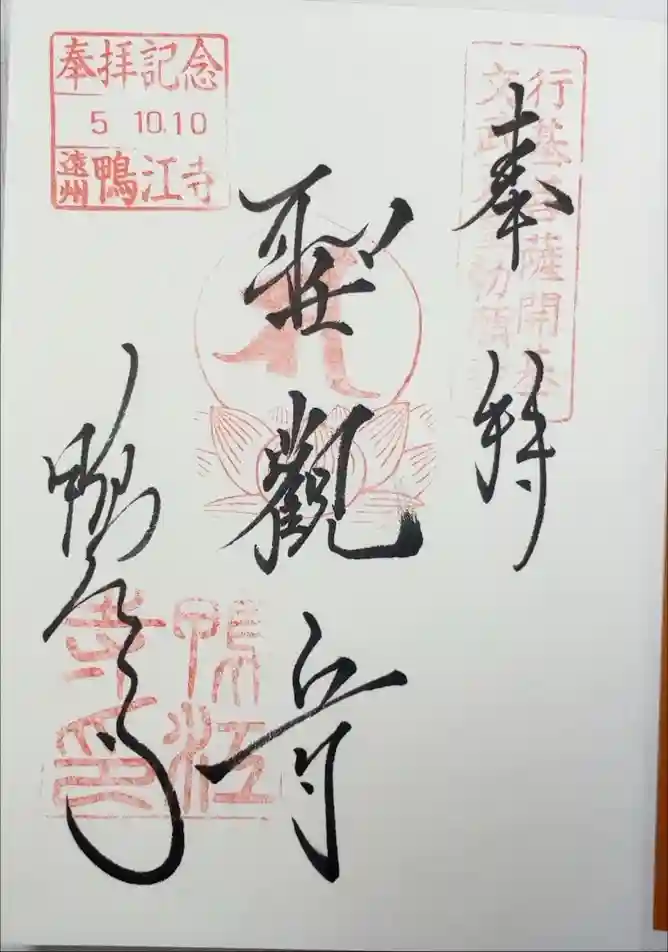 行基菩薩開基
文武天皇勅願
奉拝
聖観音
鴨江寺
奉拝記念
5 10.10
遠州 鴨江寺
鴨江
寺印